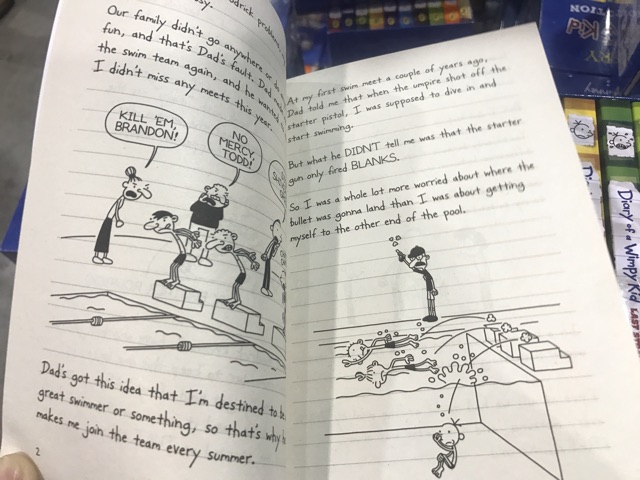 drick problem
sy.
Our family didn't go anywhere or do
fun, and that's Dad's fault. Dad
the swim team again, and he wanted
I didn't miss any meets this year.
KILL 'EM,
BRANDON!
NO
MERCY,
TODD!
Dad's got this idea that I'm destined to be
great swimmer or something, so that's why
makes me join the team every summer.
2
At my first swim meet a couple of years ago,
Dad told me that when the umpire shot off the
starter pistol, I was supposed to dive in and
start swimming.
But what he DIDN'T tell me was that the starter
gun only fired BLANKS.
So I was a whole lot more worried about where the
bullet was gonna land than I was about getting
myself to the other end of the pool.
Diary of a Wimpy Kid